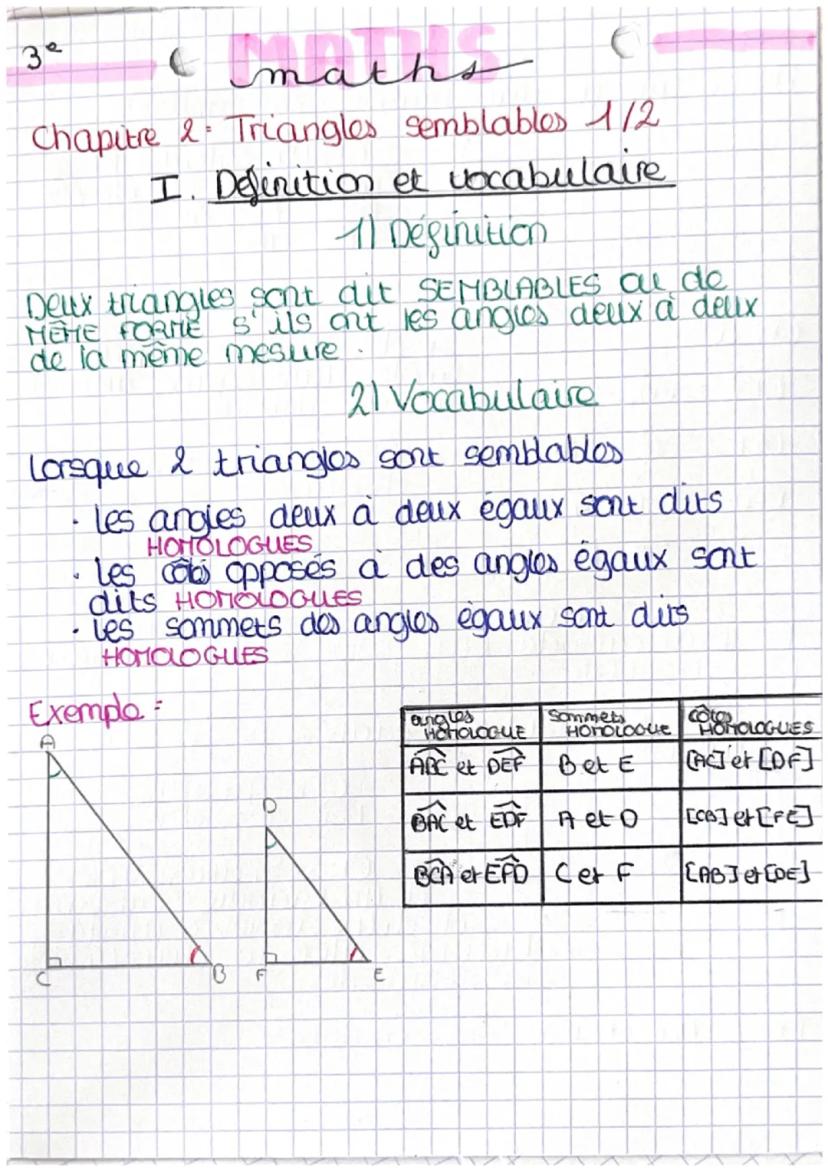 3e
MATHS
maths
Chapitre 2: Triangles semblables 1/2
I. Définition et vocabulaire
1) Définition
Deux triangles sont dit SEMBLABLES ou de
MÊME FORME s'ils ont les angles deux à deux
de la même mesure.
2) Vocabulaire
Lorsque 2 triangles sont semblables
• les angles deux à deux égaux sont dits
HOMOLOGUES
• les côtés opposés à des angles égaux sont
dits HOMOLOGUES
• les sommets des angles égaux sont dits
HOMOLOGUES
Exemple:
angles HOMOLOGUE | Sommets HOMOLOGUE | côtés HOMOLOGUES
ABC et DEF | B et E | [AC] et [DF]
BAC et EDF | A et D | [CB] et [FE]
BCA et EFD | C et F | [AB] et [DE]
A
D
C
B
F
E